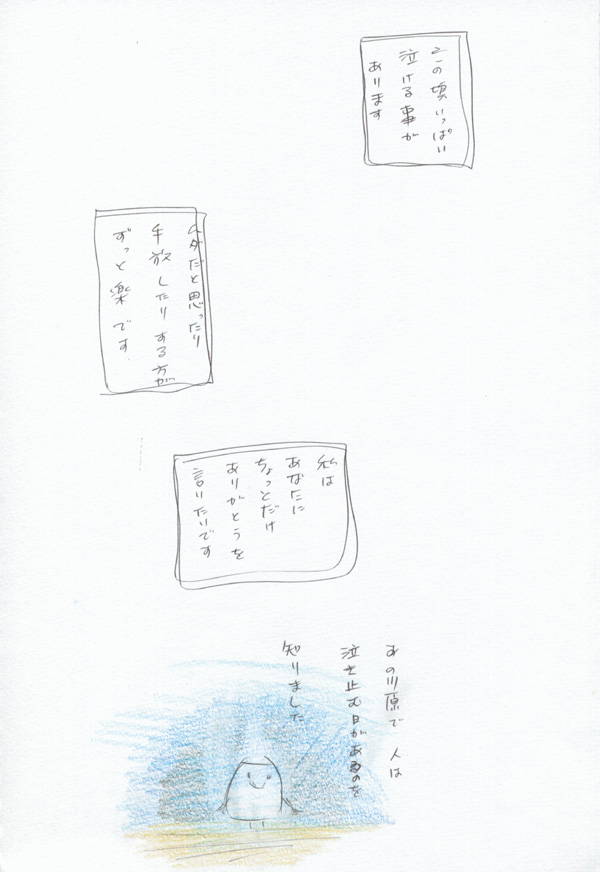 この頃いっぱい
泣ける事が
あります
だと思ったり
手放したりする方が
ずっと楽です
私は
あなたに
ちょっとだけ
ありがとうを
言いたいです
あの川原で 人は
泣き止む日があるのを
知りました